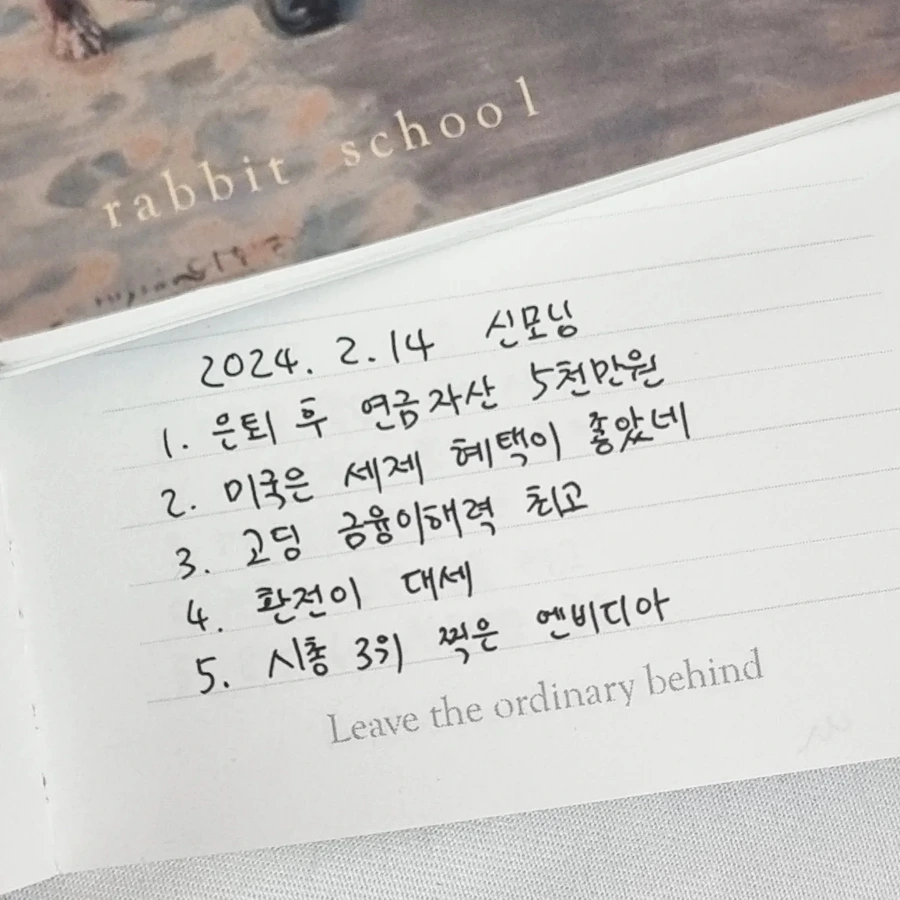 rabbit school
2024. 2. 14 신모닝
1. 은퇴 후 연금자산 5천만원
2. 미국은 세제 혜택이 좋았네
3. 고딩 금융이해력 최고
4. 환전이 대세
5. 시총 3위 찍은 엔비디아
Leave the ordinary behind